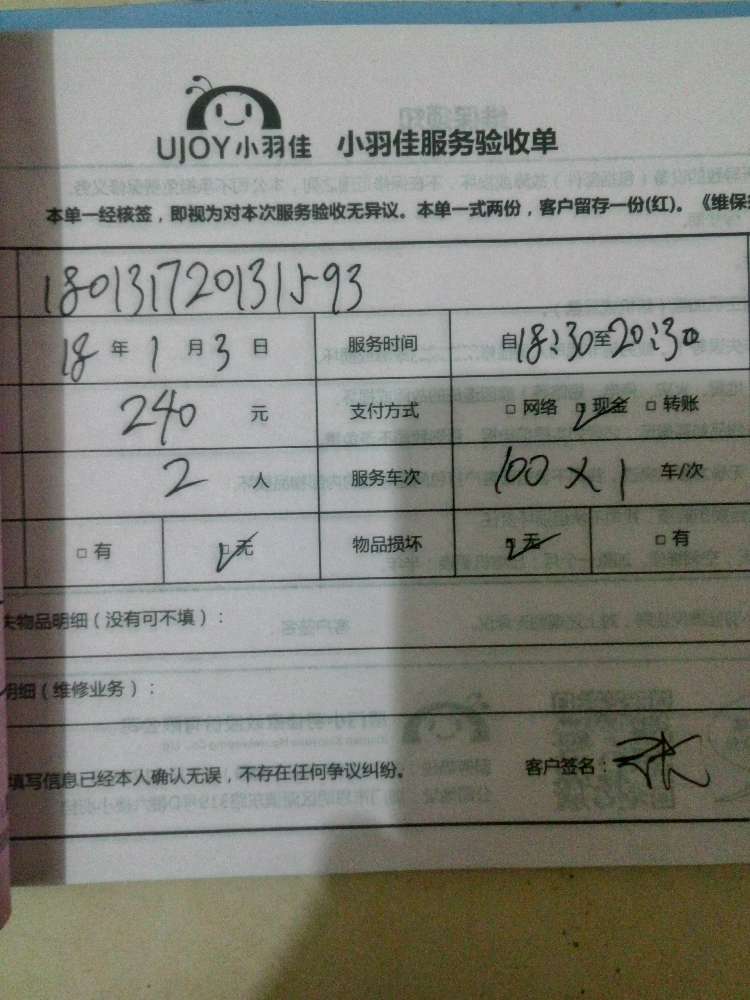 UJOY小羽佳 小羽佳服务验收单
本单一经核签，即视为对本次服务验收无异议。本单一式两份，客户留存一份(红)。《维保
180131720131593
18 年 1 月 3 日 服务时间 自18:30至20:30
240 元 支付方式 □ 网络 □ 现金 □ 转账
2 人 服务车次 100 X 1 车/次
□ 有 □ 无 物品损坏 □ 无 □ 有
失物品明细（没有可不填）：
明细（维修业务）：
填写信息已经本人确认无误，不存在任何争议纠纷。 客户签名：